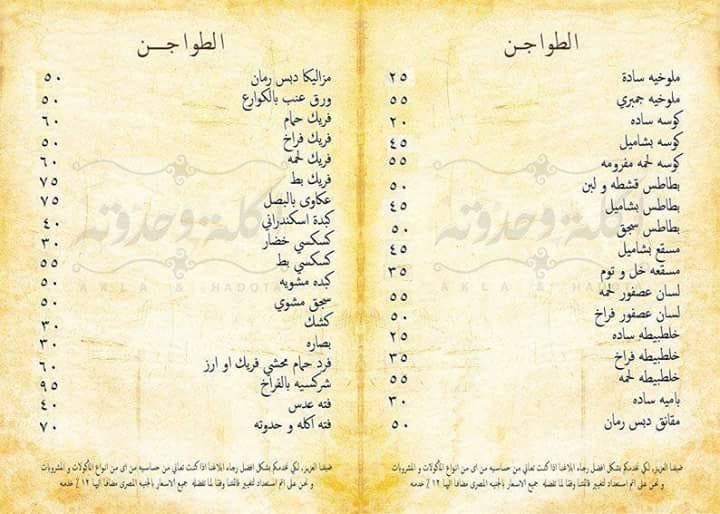 الطواجن
ملوخيه سادة ٢٥
ملوخيه جمبري ٥٥
كوسه ساده ٢٠
كوسه بشاميل ٤٥
كوسه لحمه مفرومه ٥٥
بطاطس قشطه و لبن ٥٠
بطاطس بشاميل ٤٥
بطاطس سجق ٥٠
مسقع بشاميل ٤٥
مسقعه خل و توم ٣٥
لسان عصفور لحمه ٥٥
لسان عصفور فراخ ٥٠
خلطبيطه ساده ٢٥
خلطبيطه فراخ ٣٥
خلطبيطه لحمه ٥٥
باميه ساده ٣٠
مقانق دبس رمان ٥٠
أكلة وحدوته
AKLA & HADOTA
ضيفنا العزيز, لكي نخدمكم بشكل افضل رجاء ابلاغنا اذا كنت تعاني من حساسيه من اى من انواع المأكولات و المشروبات
و نحن على اتم استعداد لتغيير قائمتنا وفقا لما تفضله جميع الاسعار بالجنيه المصرى مضافا اليها ١٢ ٪ خدمه
الطواجن
مزاليكا دبس رمان ٥٠
ورق عنب بالكوارع ٥٠
فريك حمام ٦٠
فريك فراخ ٥٠
فريك لحمه ٦٠
فريك بط ٧٥
عكاوى بالبصل ٧٥
كبدة اسكندراني ٤٠
كسكسي خضار ٣٠
كسكسي بط ٥٥
كبده مشويه ٥٠
سجق مشوي ٥٠
كشك ٣٠
بصاره ٣٠
فرد حمام محشي فريك او ارز ٦٠
شركسيه بالفراخ ٩٥
فته عدس ٤٠
فته اكله و حدوته ٧٠
أكلة وحدوته
AKLA & HADOTA
ضيفنا العزيز, لكي نخدمكم بشكل افضل رجاء ابلاغنا اذا كنت تعاني من حساسيه من اى من انواع المأكولات و المشروبات
و نحن على اتم استعداد لتغيير قائمتنا وفقا لما تفضله جميع الاسعار بالجنيه المصرى مضافا اليها ١٢ ٪ خدمه